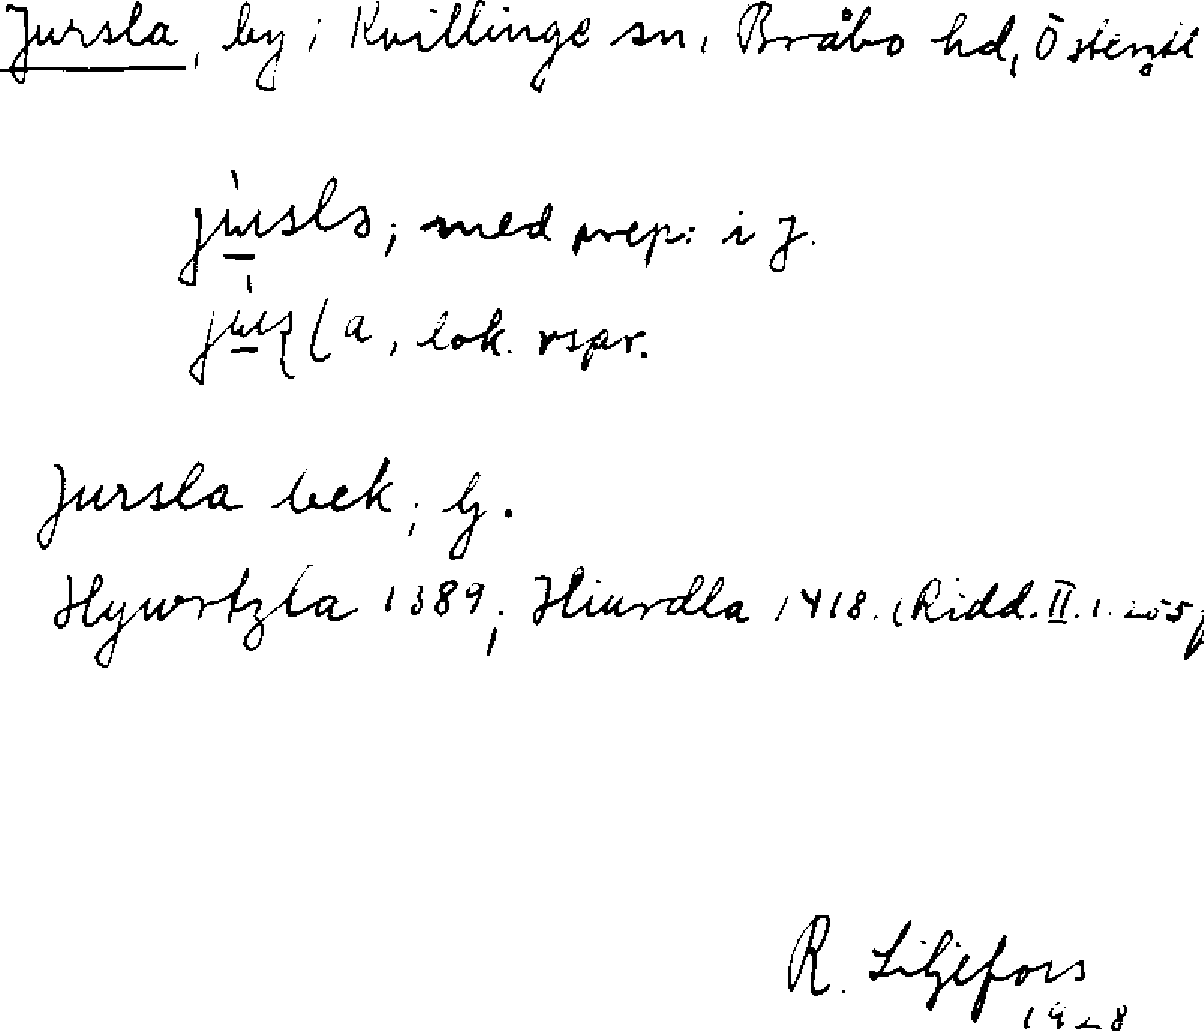 Jursla, by i Kvillinge sn, Bråbo hd, Östergötl
jùrslə, med prep: i J.
jùṣḷa, lok. rspr.
Jursla bek, Lj.
Hywrtzla 1389; Hiurdla 1418. (Ridd. II. 1. 255)
R. Liljefors
1928